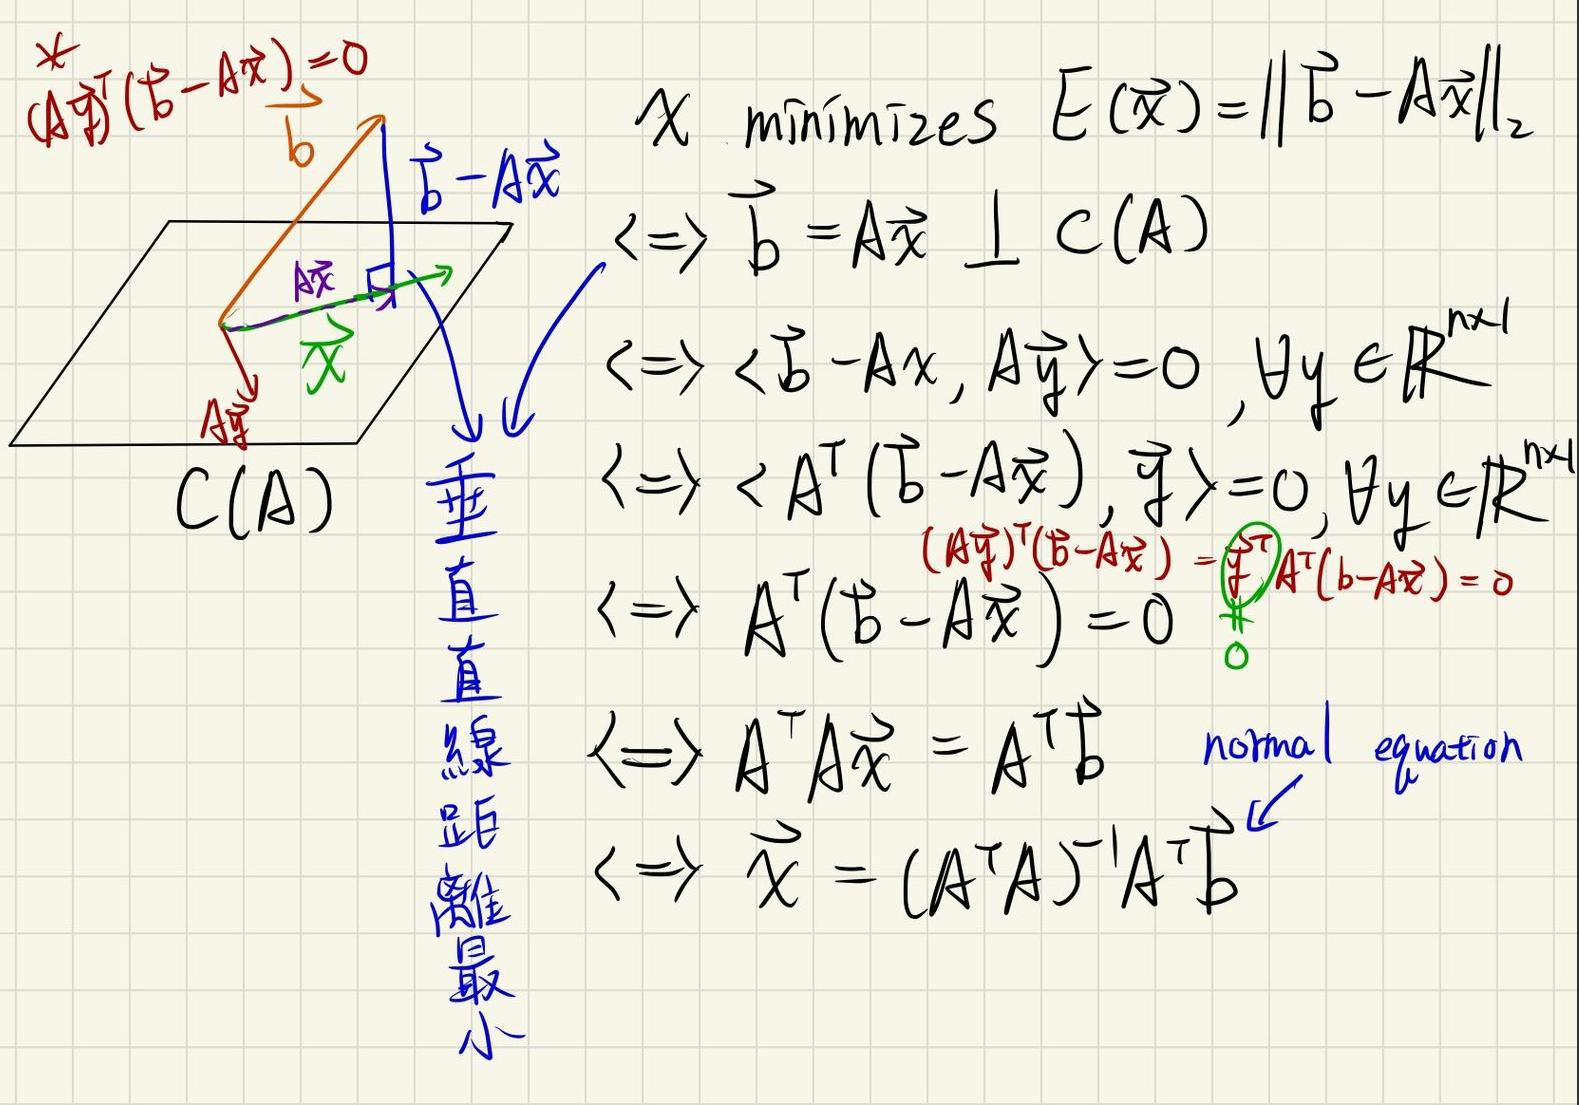 *
(Ay⃗)ᵀ(b⃗-Ax⃗)=0
b⃗
b⃗-Ax⃗
Ax⃗
x⃗
Ay⃗
C(A)
垂
直
直
線
距
離
最
小
x minimizes E(x⃗)=‖b⃗-Ax⃗‖₂
<=> b⃗=Ax⃗ ⊥ C(A)
<=> <b⃗-Ax, Ay⃗>=0, ∀y∈ℝⁿˣ¹
<=> <Aᵀ(b⃗-Ax⃗), y⃗>=0, ∀y∈ℝⁿˣ¹
(Ay⃗)ᵀ(b⃗-Ax⃗) = y⃗ᵀAᵀ(b-Ax⃗)=0
<=> Aᵀ(b⃗-Ax⃗)=0
≠
0
<=> AᵀAx⃗ = Aᵀb⃗
normal equation
<=> x⃗ = (AᵀA)⁻¹Aᵀb⃗